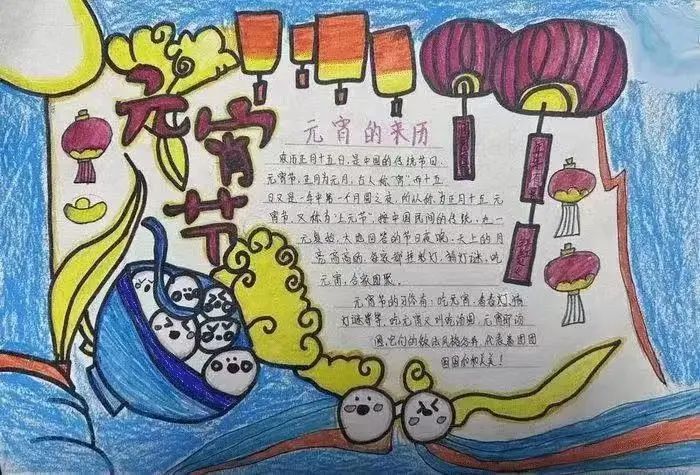 元宵节
元宵的来历
农历正月十五日,是中国的传统节日
元宵节,正月为元月,古人称“宵”而十五
日又是一年中第一个月圆之夜,所以称为正月十五元
宵节,又称为“上元节”,按中国民间的传统,在一
元复始,大地回春的节日夜晚,天上的月
高高的,各家都挂彩灯,猜灯谜,吃
元宵,合家团聚。
元宵节的习俗有:吃元宵,看春灯,猜
灯谜等等,吃元宵又叫汤圆,元宵即汤
圆,它们的做法风格各异,代表着团团
圆圆和和美美!